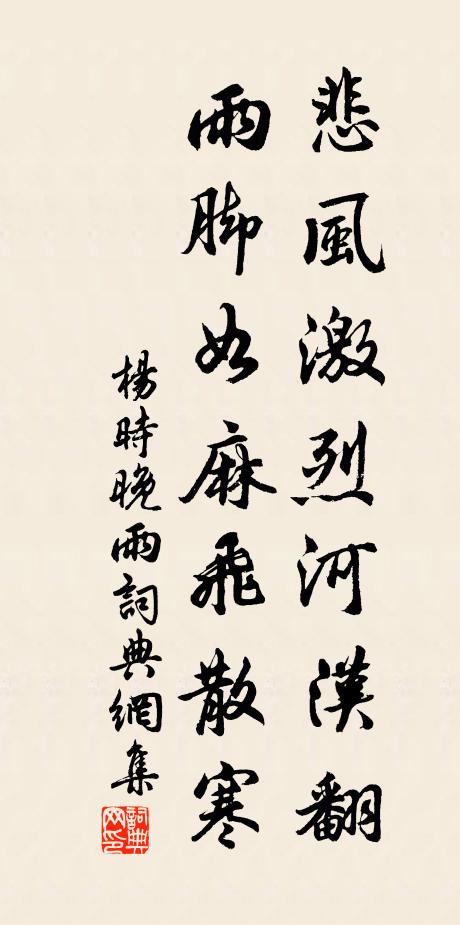 悲風激烈河漢翻
雨脚如麻飛散寒
楊時晚雨詞典網集
詞典網印